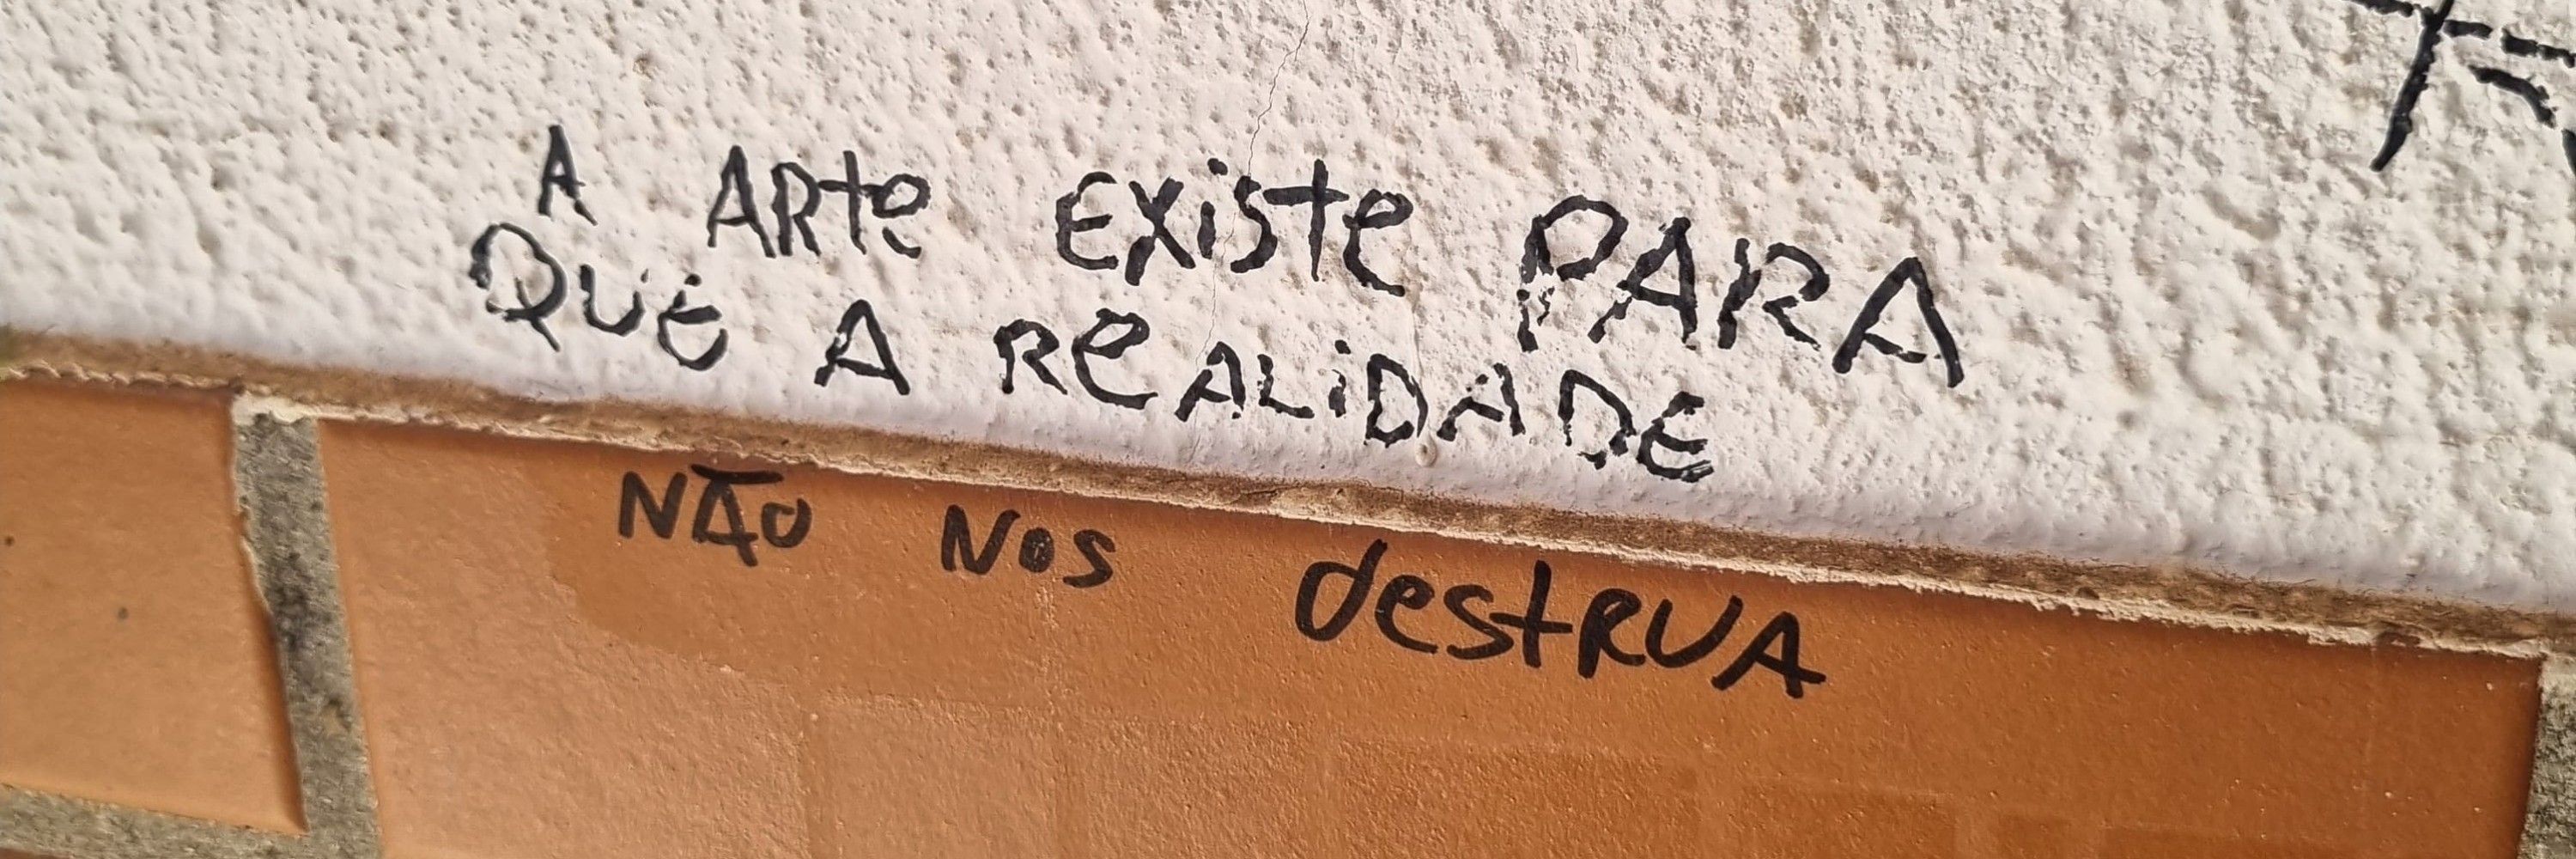 A ARte existe PARA
QUE A ReALiDADE
NÃO Nos destRUA